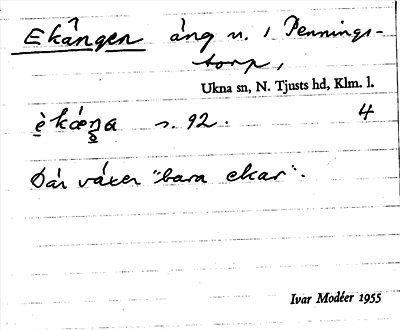 Ekången äng n. i Pennings-
torp,
Ukna sn, N. Tjusts hd, Klm. l.
s. 92. 4
Där växer "bara ekar".
Ivar Modéer 1955